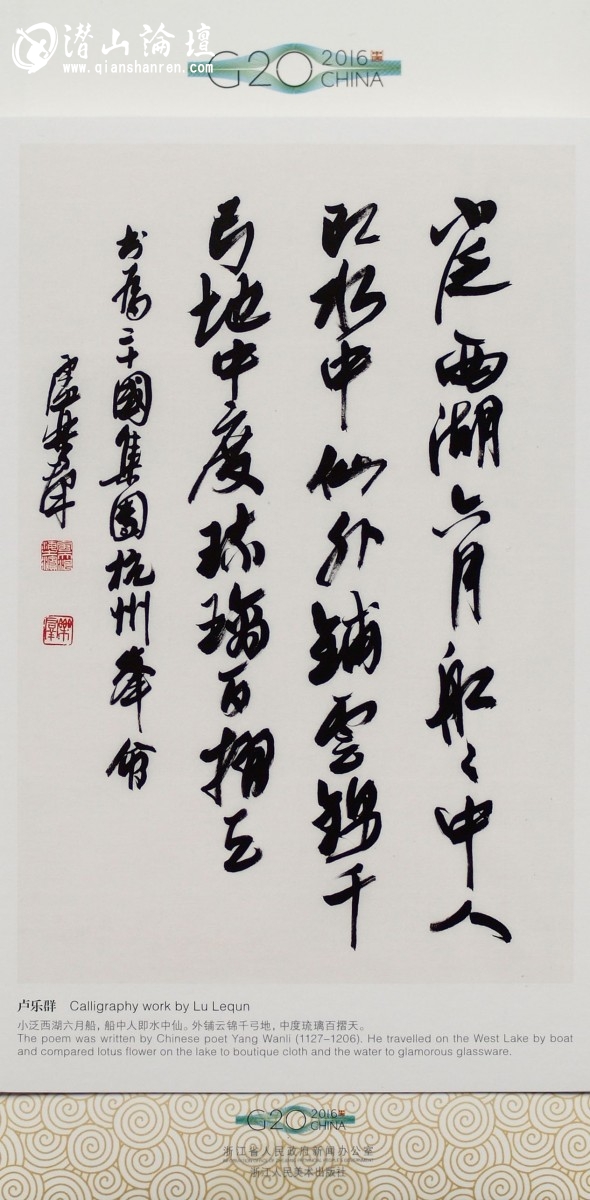 潛山論壇
www.qianshanren.com
G20 2016
CHINA
小泛西湖六月船々中人
即水中仙外鋪雲錦千
弓地中度琉璃百摺天
書為二十國集團杭州峰會
盧樂群
卢乐群 Calligraphy work by Lu Lequn
小泛西湖六月船，船中人即水中仙。外铺云锦千弓地，中度琉璃百摺天。
The poem was written by Chinese poet Yang Wanli (1127–1206). He travelled on the West Lake by boat
and compared lotus flower on the lake to boutique cloth and the water to glamorous glassware.
G20 2016
CHINA
浙江省人民政府新闻办公室
浙江人民美术出版社